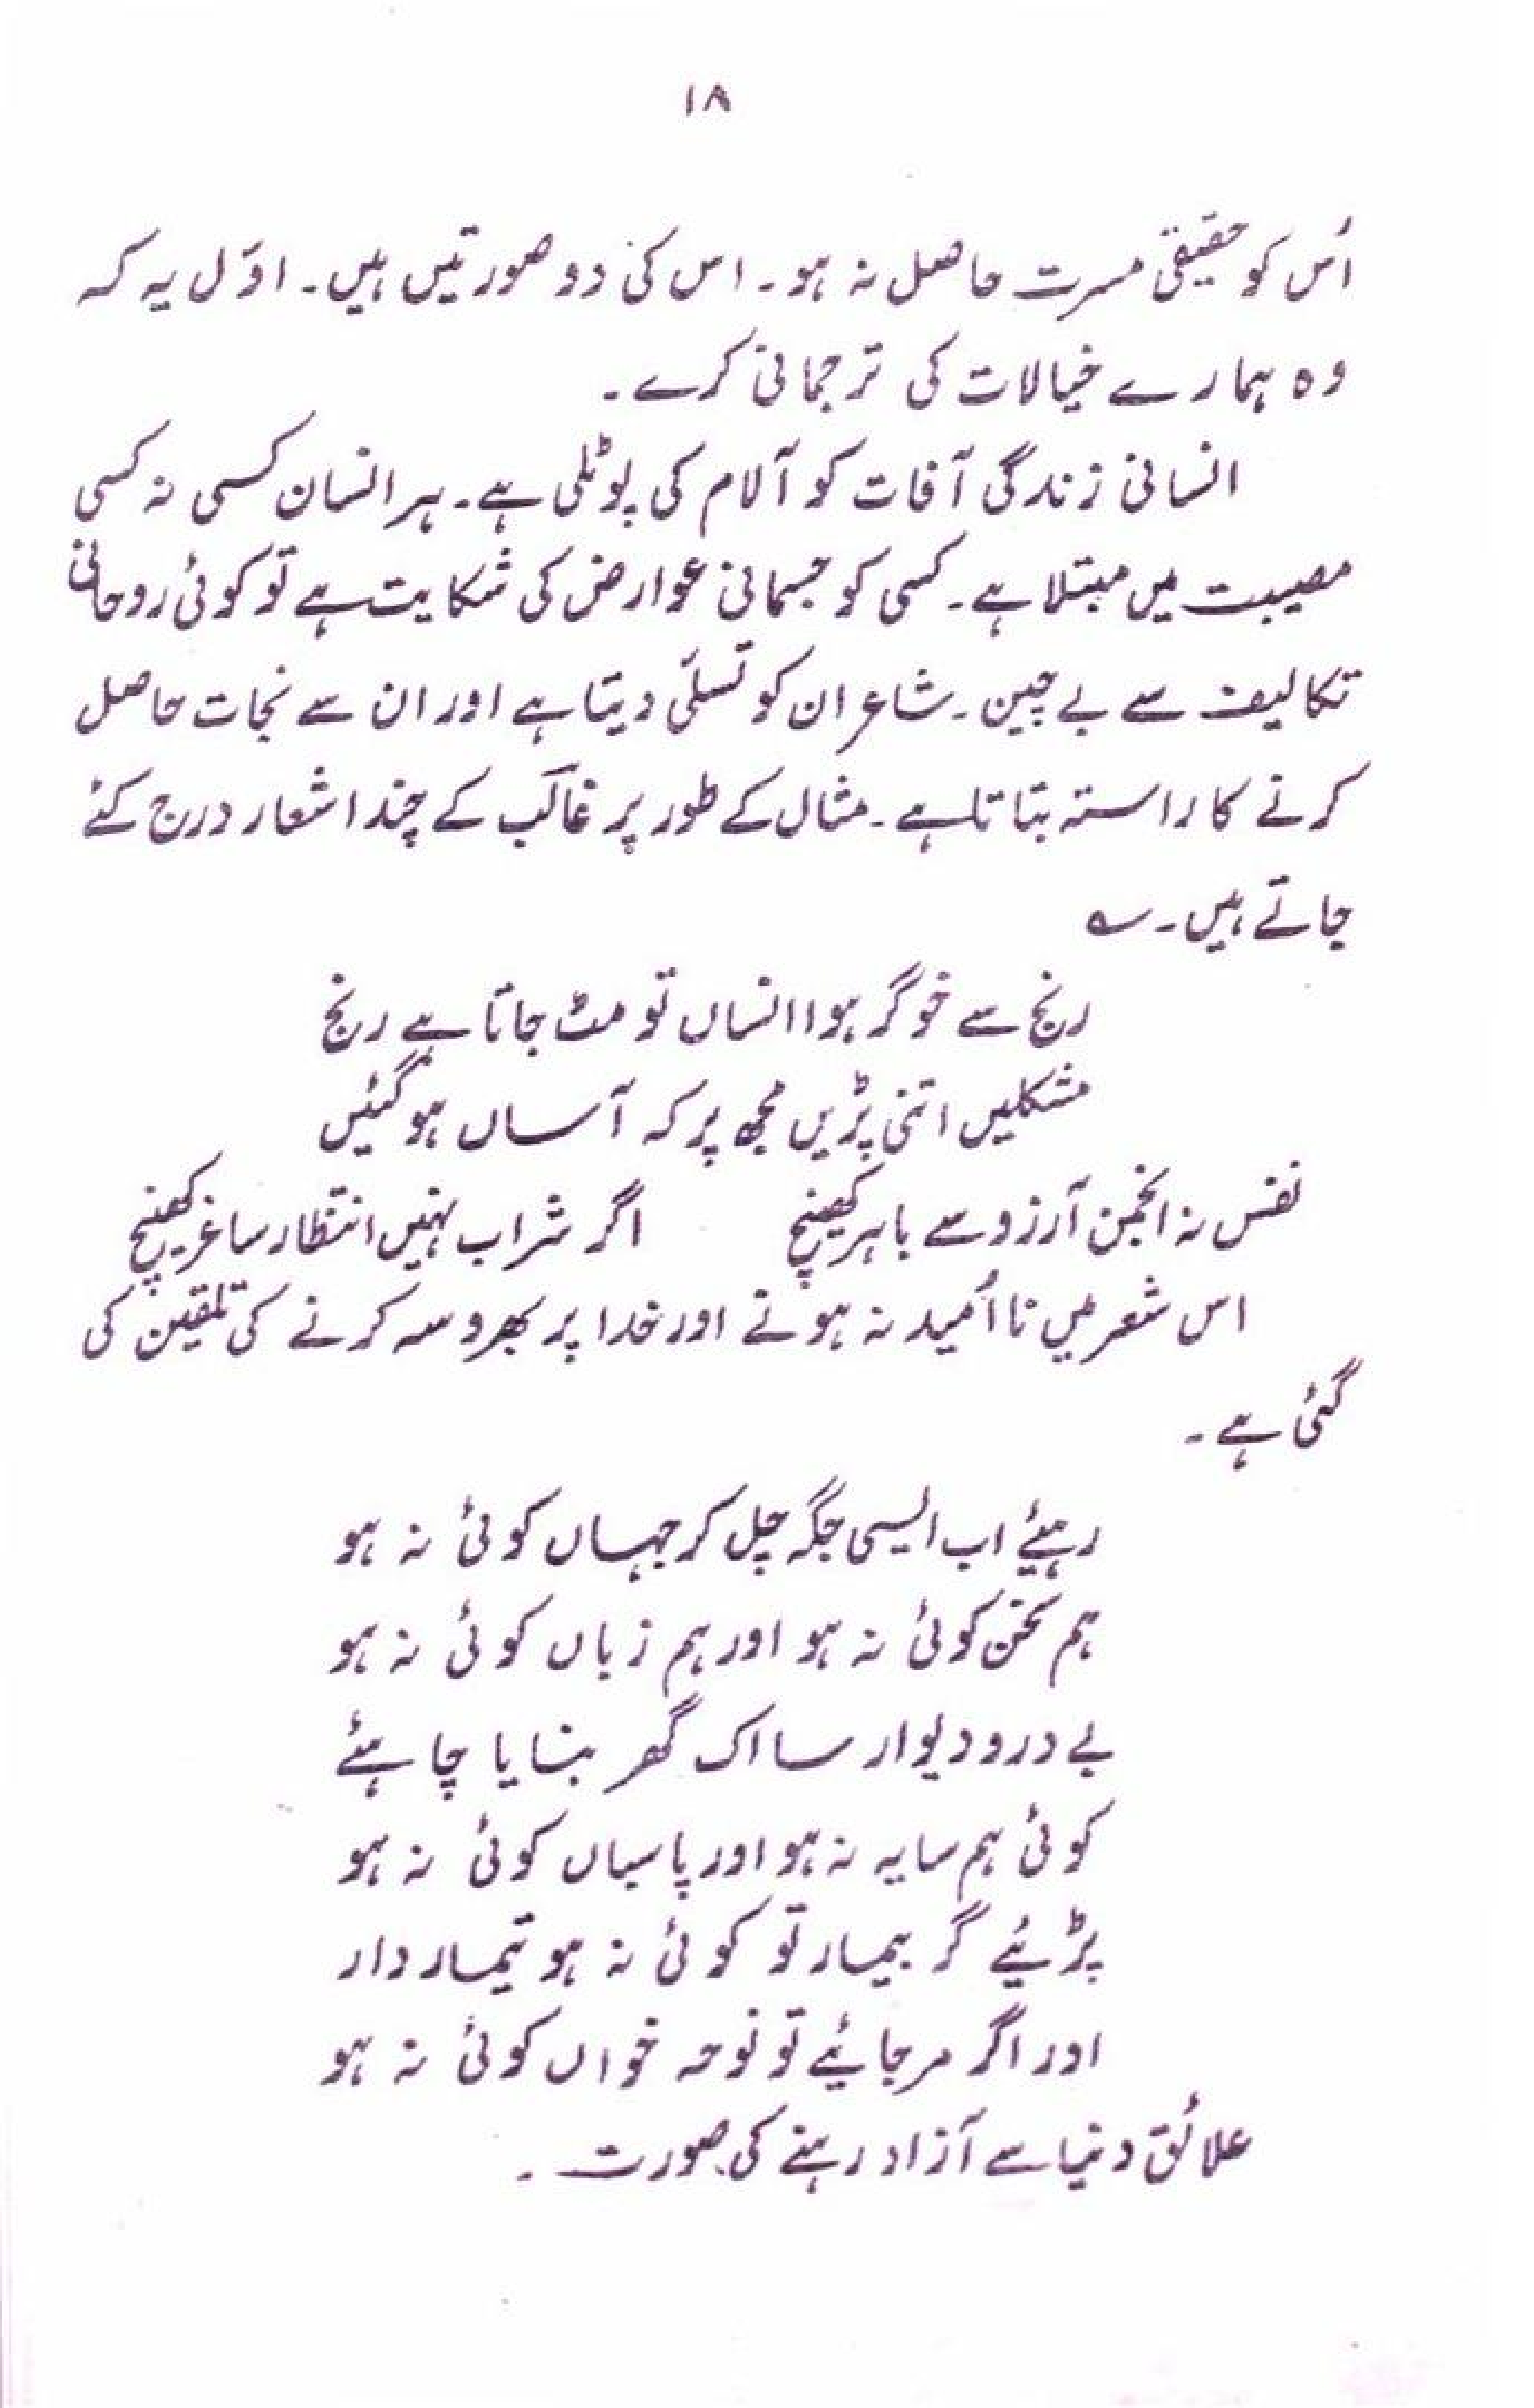 ۱۸
اُس کو حقیقی مسرت حاصل نہ ہو۔ اس کی دو صورتیں ہیں۔ اوّل یہ کہ
وہ ہمارے خیالات کی ترجمانی کرے۔
انسانی زندگی آفات کو آلام کی پوٹلی ہے۔ ہر انسان کسی نہ کسی
مصیبت میں مبتلا ہے۔ کسی کو جسمانی عوارض کی شکایت ہے تو کوئی روحانی
تکالیف سے بے چین۔ شاعر ان کو تسلّی دیتا ہے اور ان سے نجات حاصل
کرنے کا راستہ بتاتا ہے۔ مثال کے طور پر غالب کے چند اشعار درج کئے
جاتے ہیں۔ ؎
رنج سے خوگر ہوا انساں تو مٹ جاتا ہے رنج
مشکلیں اتنی پڑیں مجھ پر کہ آساں ہو گئیں
نفس نہ انجمن آرزو سے باہر کھینچ اگر شراب نہیں انتظار ساغر کھینچ
اس شعر میں نا اُمید نہ ہونے اور خدا پر بھروسہ کرنے کی تلقین کی
گئی ہے۔
رہیئے اب ایسی جگہ چل کر جہاں کوئی نہ ہو
ہم سخن کوئی نہ ہو اور ہم زباں کوئی نہ ہو
بے در و دیوار سا اک گھر بنایا چاہئے
کوئی ہم سایہ نہ ہو اور پاسباں کوئی نہ ہو
پڑیئے گر بیمار تو کوئی نہ ہو تیماردار
اور اگر مر جائیے تو نوحہ خواں کوئی نہ ہو
علائق دنیا سے آزاد رہنے کی صورت۔